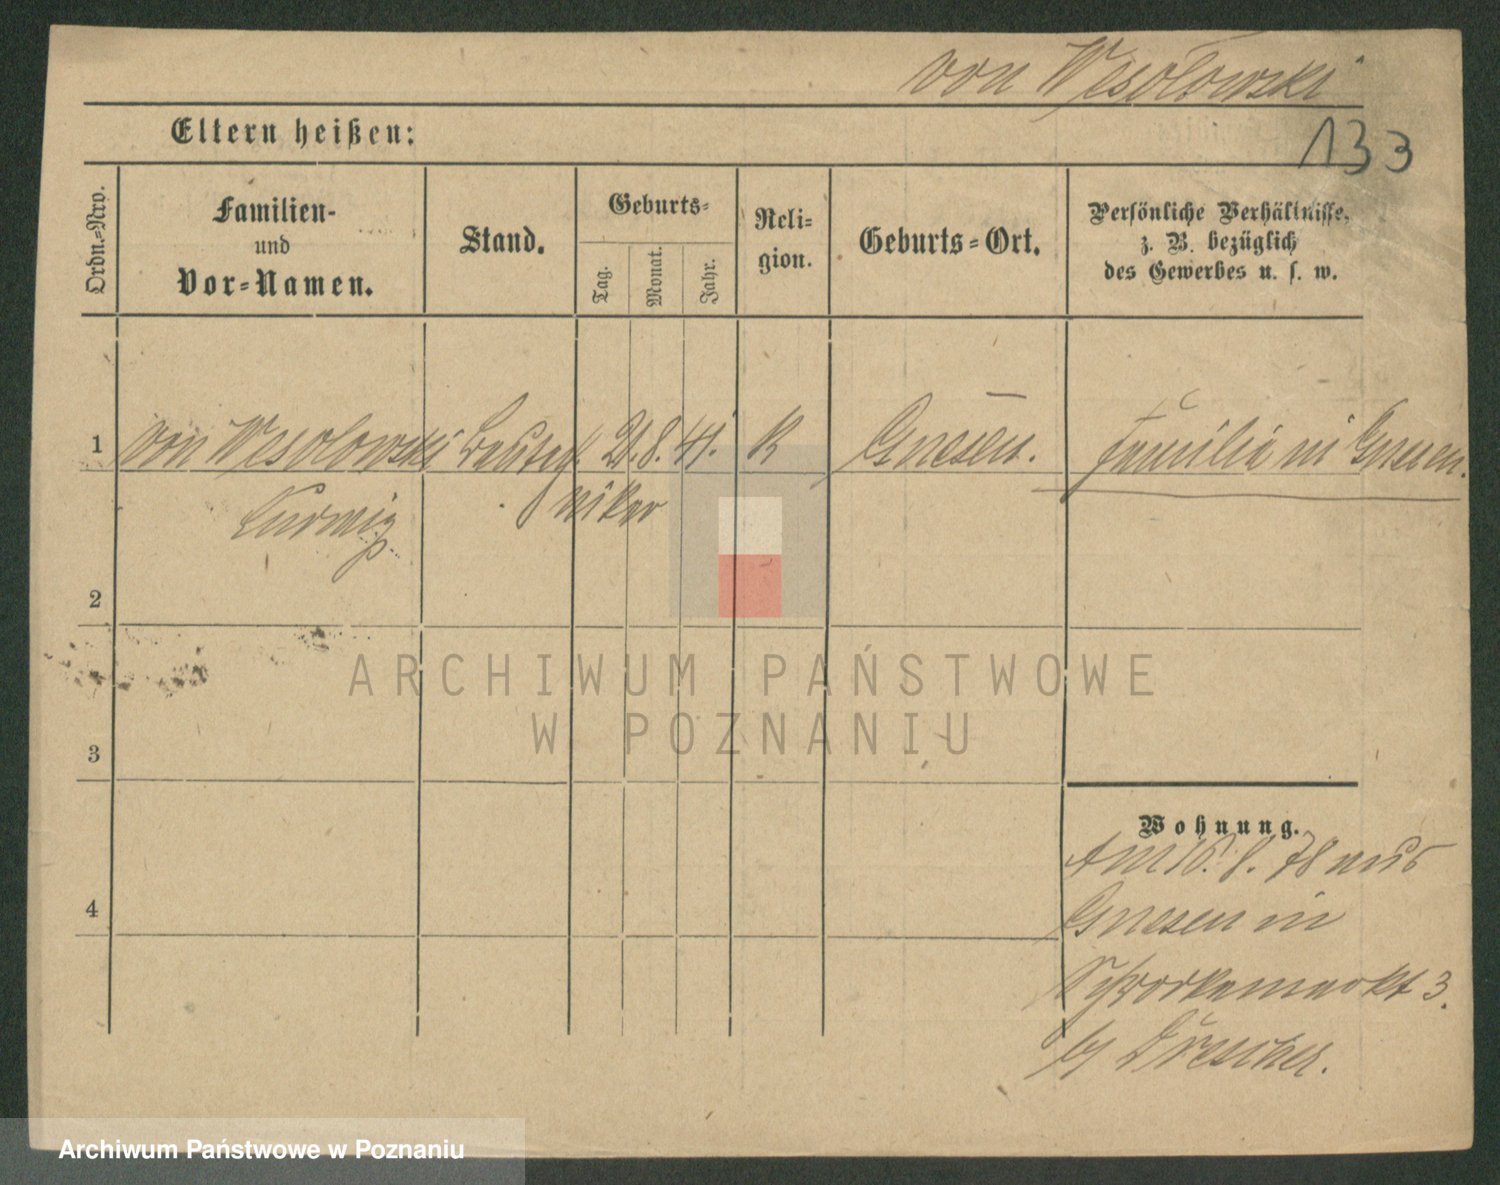 von Wesolowski
133
Eltern heißen:
Ordn.-Nro.
Familien-
und
Vor-Namen.
Stand.
Geburts-
Tag.
Monat.
Jahr.
Reli-
gion.
Geburts-Ort.
Persönliche Verhältnisse,
z. B. bezüglich
des Gewerbes u. s. w.
1
von Wesolowski
Ludwig
Bautech
niker
21. 8. 41.
K
Gnesen.
Familie in Gnesen.
2
3
4
Wohnung.
Am 16. 8. 78 aus
Gnesen in
3.
by Drescher.
ARCHIWUM PAŃSTWOWE
W POZNANIU
Archiwum Państwowe w Poznaniu